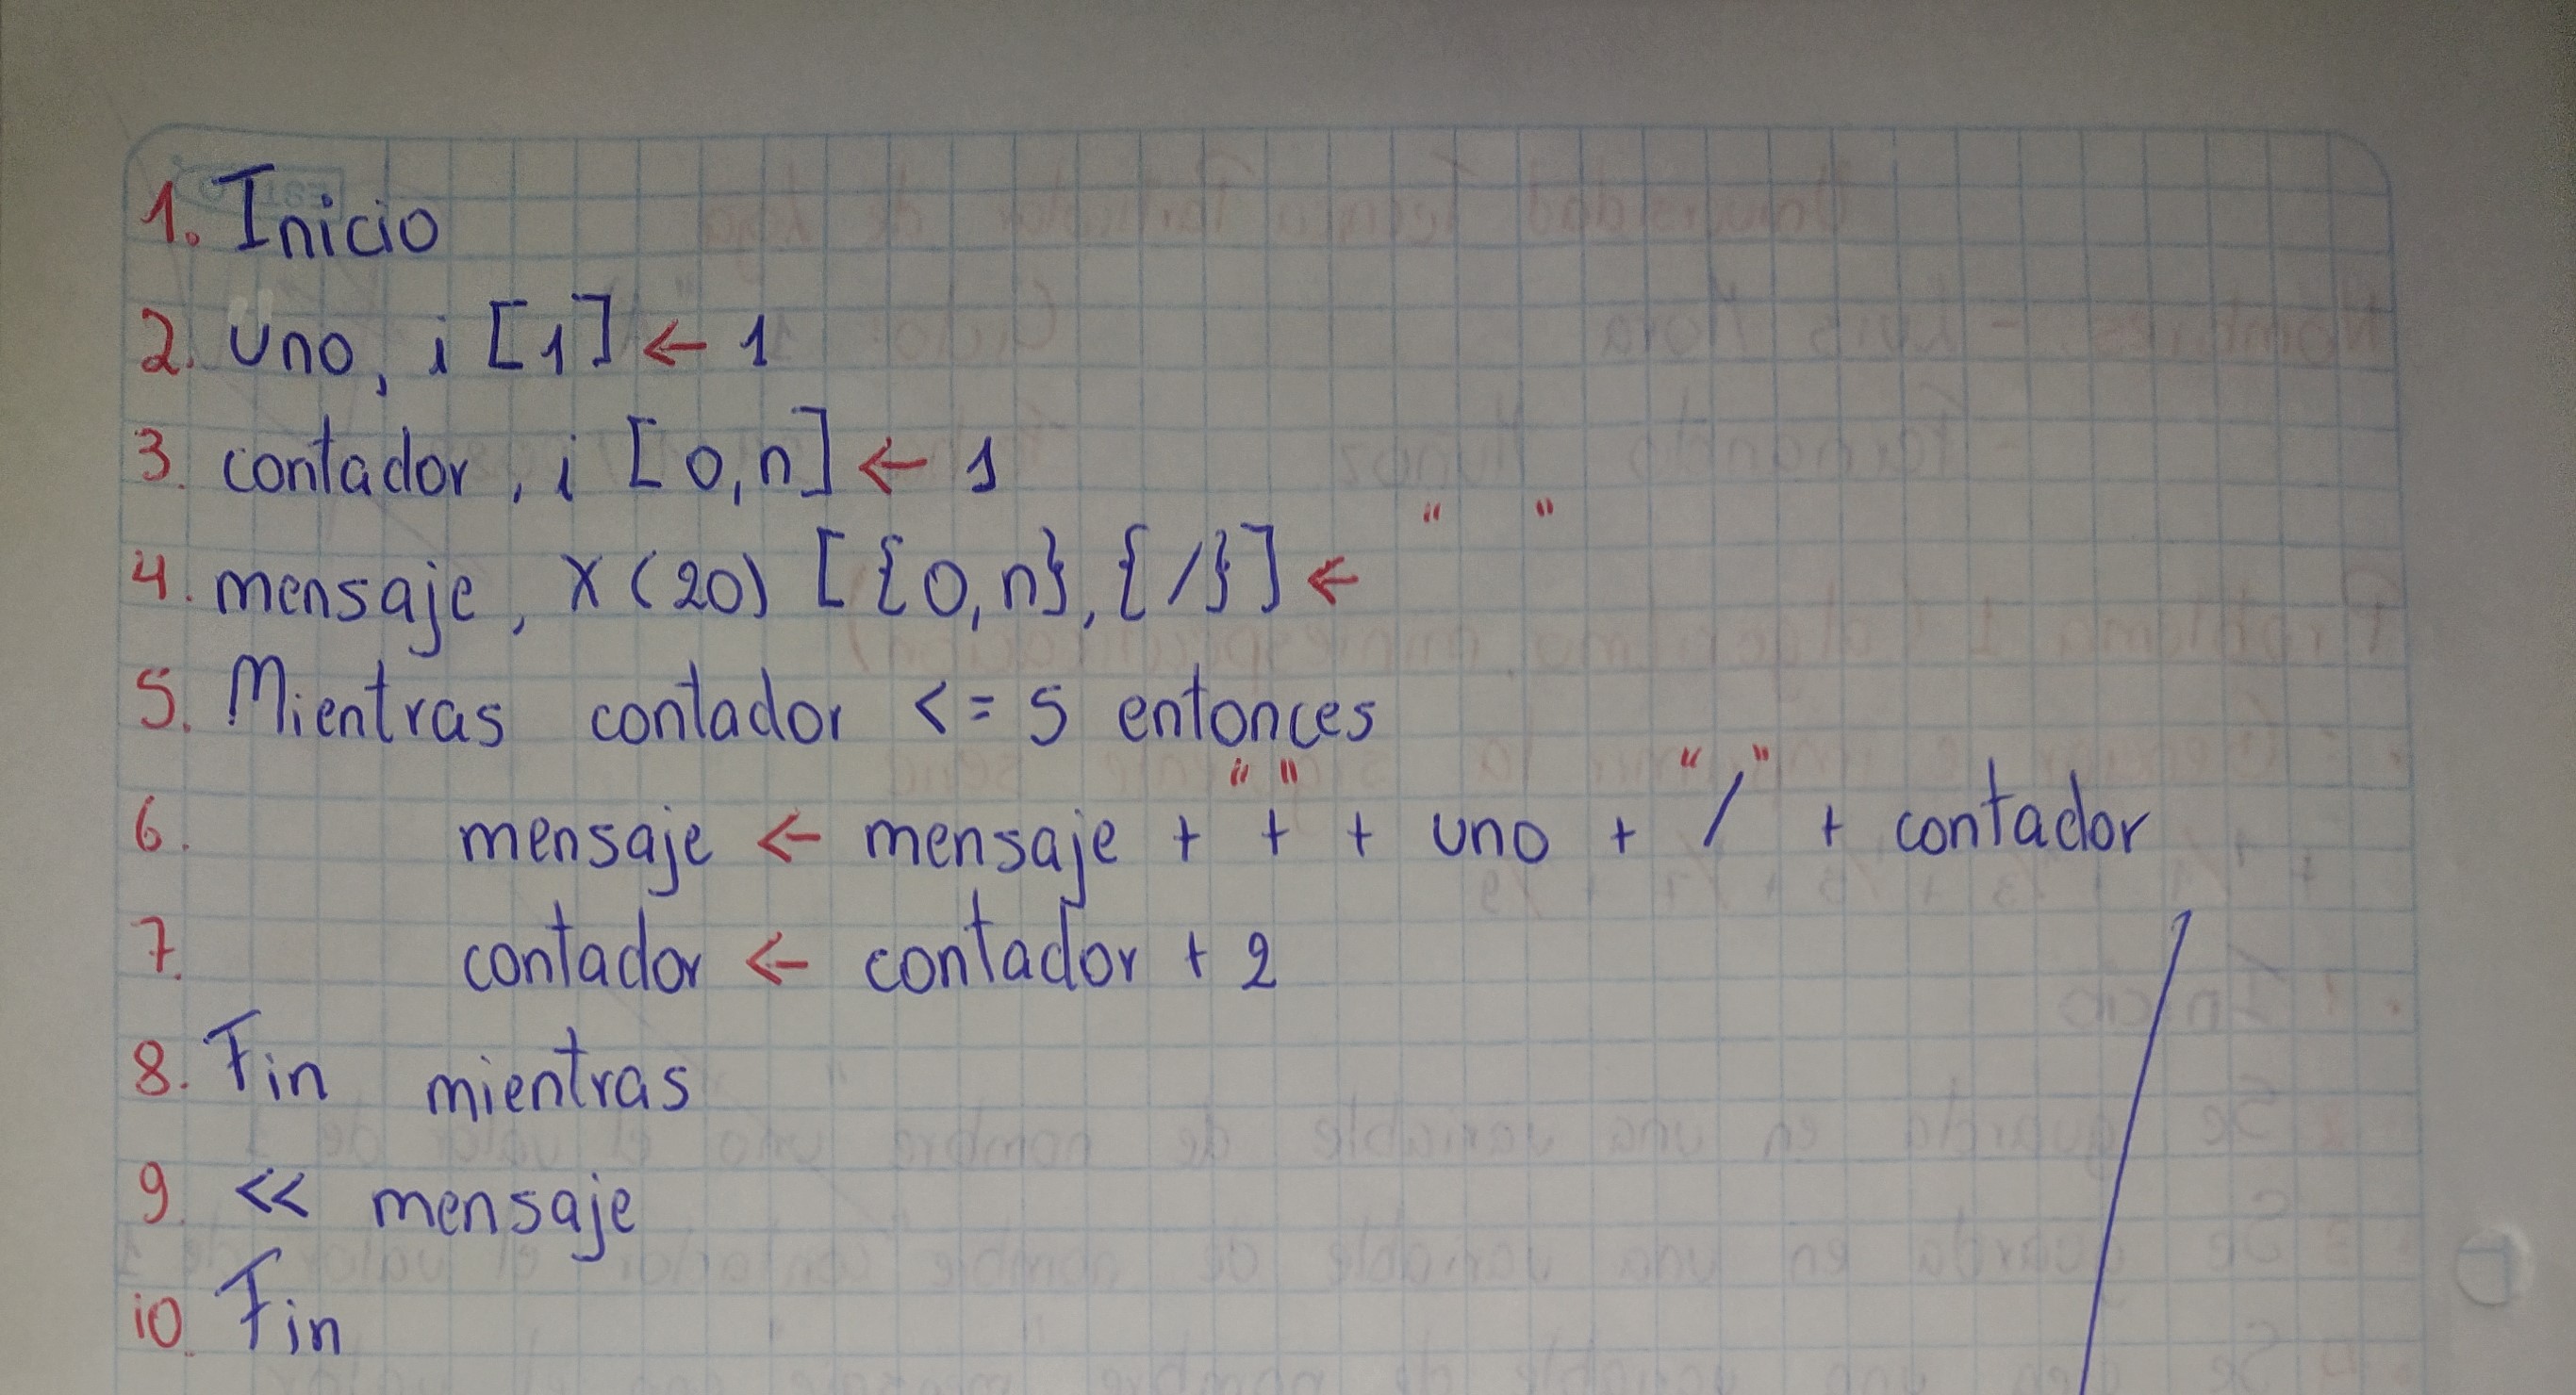 1. Inicio
2. uno, i [1] ← 1
3. contador, i [0,n] ← 1
4. mensaje, X (20) [{0,n},{/}] ← " "
5. Mientras contador <= 5 entonces
6. mensaje ← mensaje + "+" + uno + "/" + contador
7. contador ← contador + 2
8. Fin mientras
9. << mensaje
10. Fin